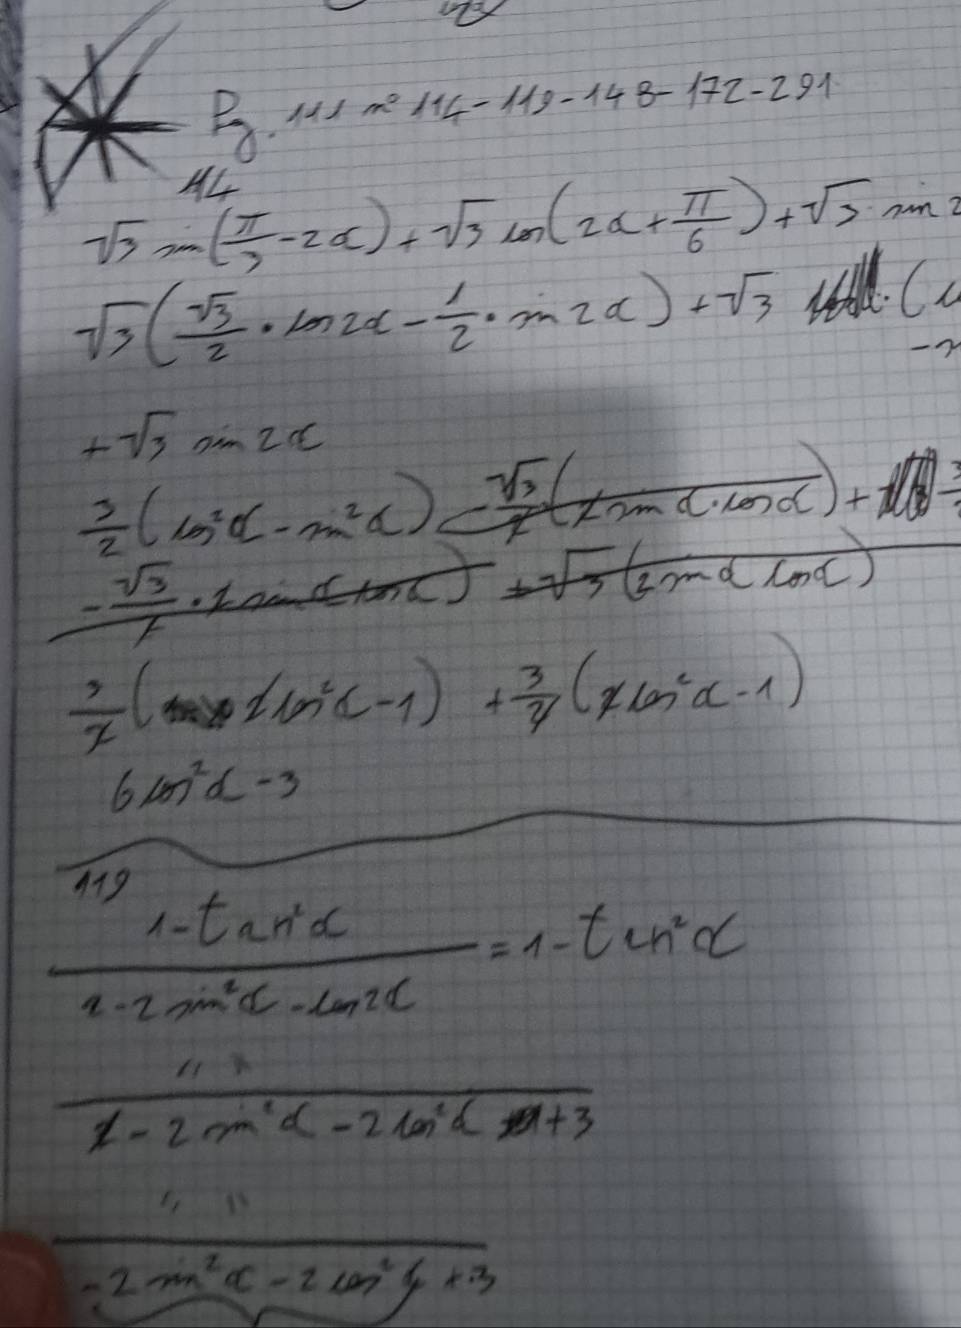 Pg. 111 n° 114-119-148-172-291
114
√3 sin(π/3 - 2α) + √3 cos(2α + π/6) + √3 sin 2
√3(√3/2 · cos2α - 1/2 · sin 2α) + √3 (
+ √3 sin 2α
3/2 (cos²α - sin²α) - √3/2 (2 sin α · cos α) + 3
- √3/2 · 2 sin α cos α) + √3 (2 sin α cos α)
3/2 (2cos²α - 1) + 3/2 (2cos²α - 1)
6 cos²α - 3
119
1 - tan²α / 2 - 2 sin²α - cos2α = 1 - tan²α
" "
2 - 2 sin²α - 2 cos²α + 3
" "
- 2 sin²α - 2 cos²α + 3